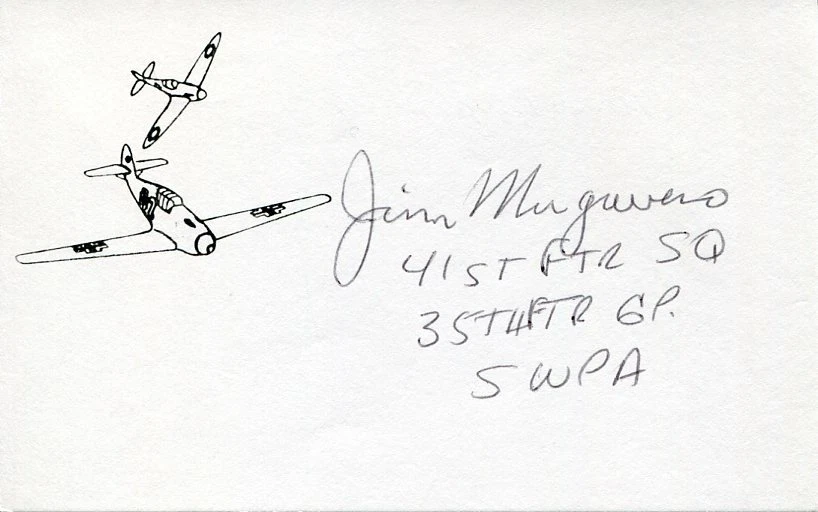 Jim Mugavero
41ST FTR SQ
35TH FTR GP.
SWPA